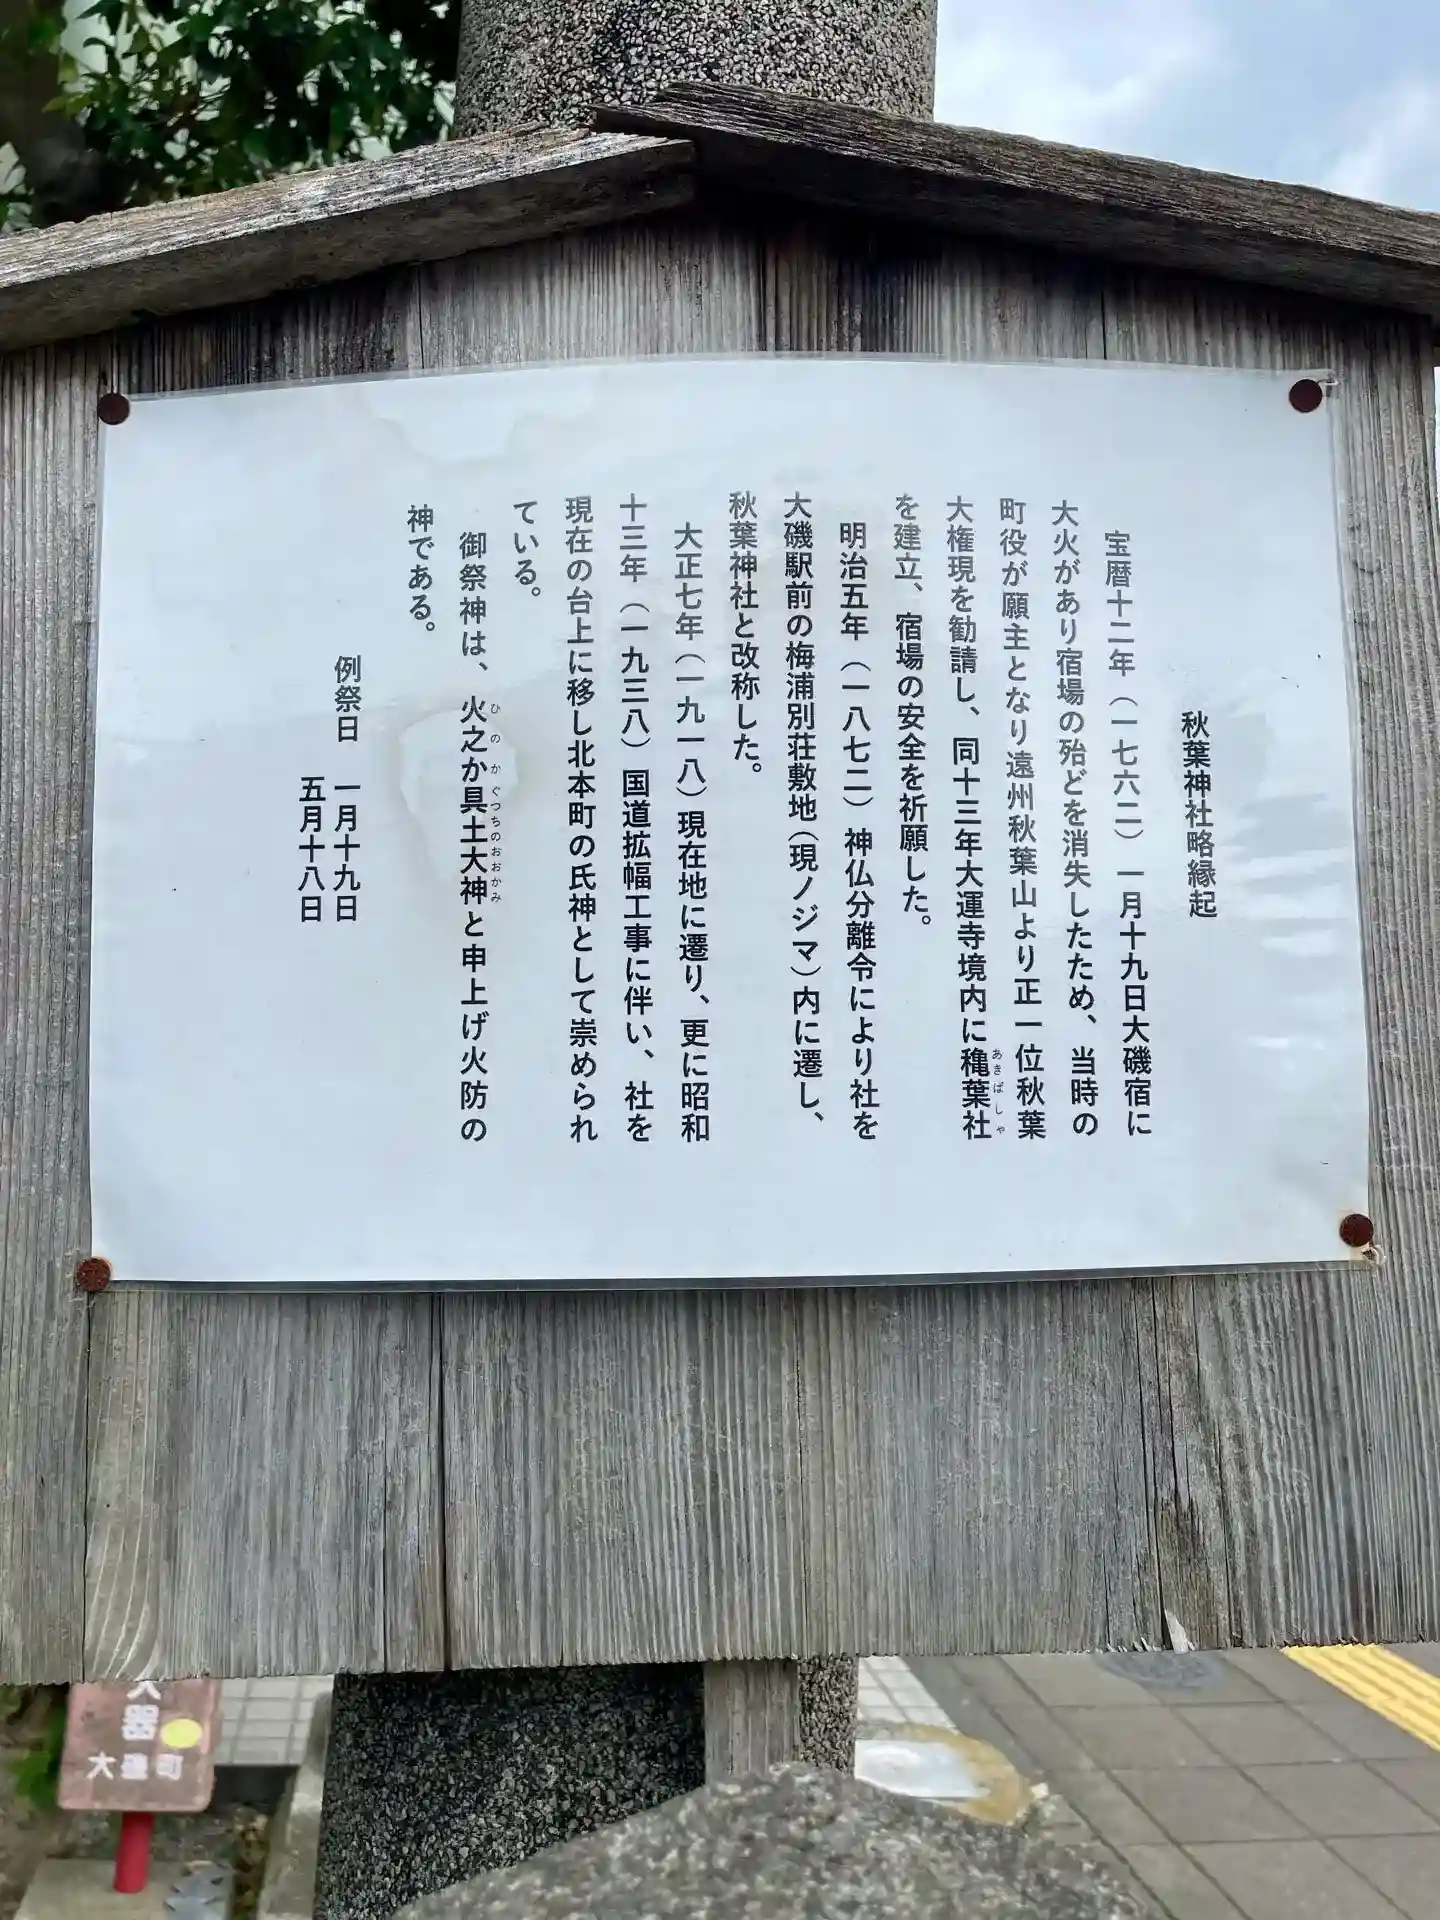 秋葉神社略縁起
宝暦十二年（一七六二）一月十九日大磯宿に
大火があり宿場の殆どを消失したため、当時の
町役が願主となり遠州秋葉山より正一位秋葉
大権現を勧請し、同十三年大運寺境内に穐葉社
あきばしゃ
を建立、宿場の安全を祈願した。
明治五年（一八七二）神仏分離令により社を
大磯駅前の梅浦別荘敷地（現ノジマ）内に遷し、
秋葉神社と改称した。
大正七年（一九一八）現在地に遷り、更に昭和
十三年（一九三八）国道拡幅工事に伴い、社を
現在の台上に移し北本町の氏神として崇められ
ている。
御祭神は、火之か具土大神と申上げ火防の
ひのかぐつちのおおかみ
神である。
例祭日 一月十九日
五月十八日
器
大磯町